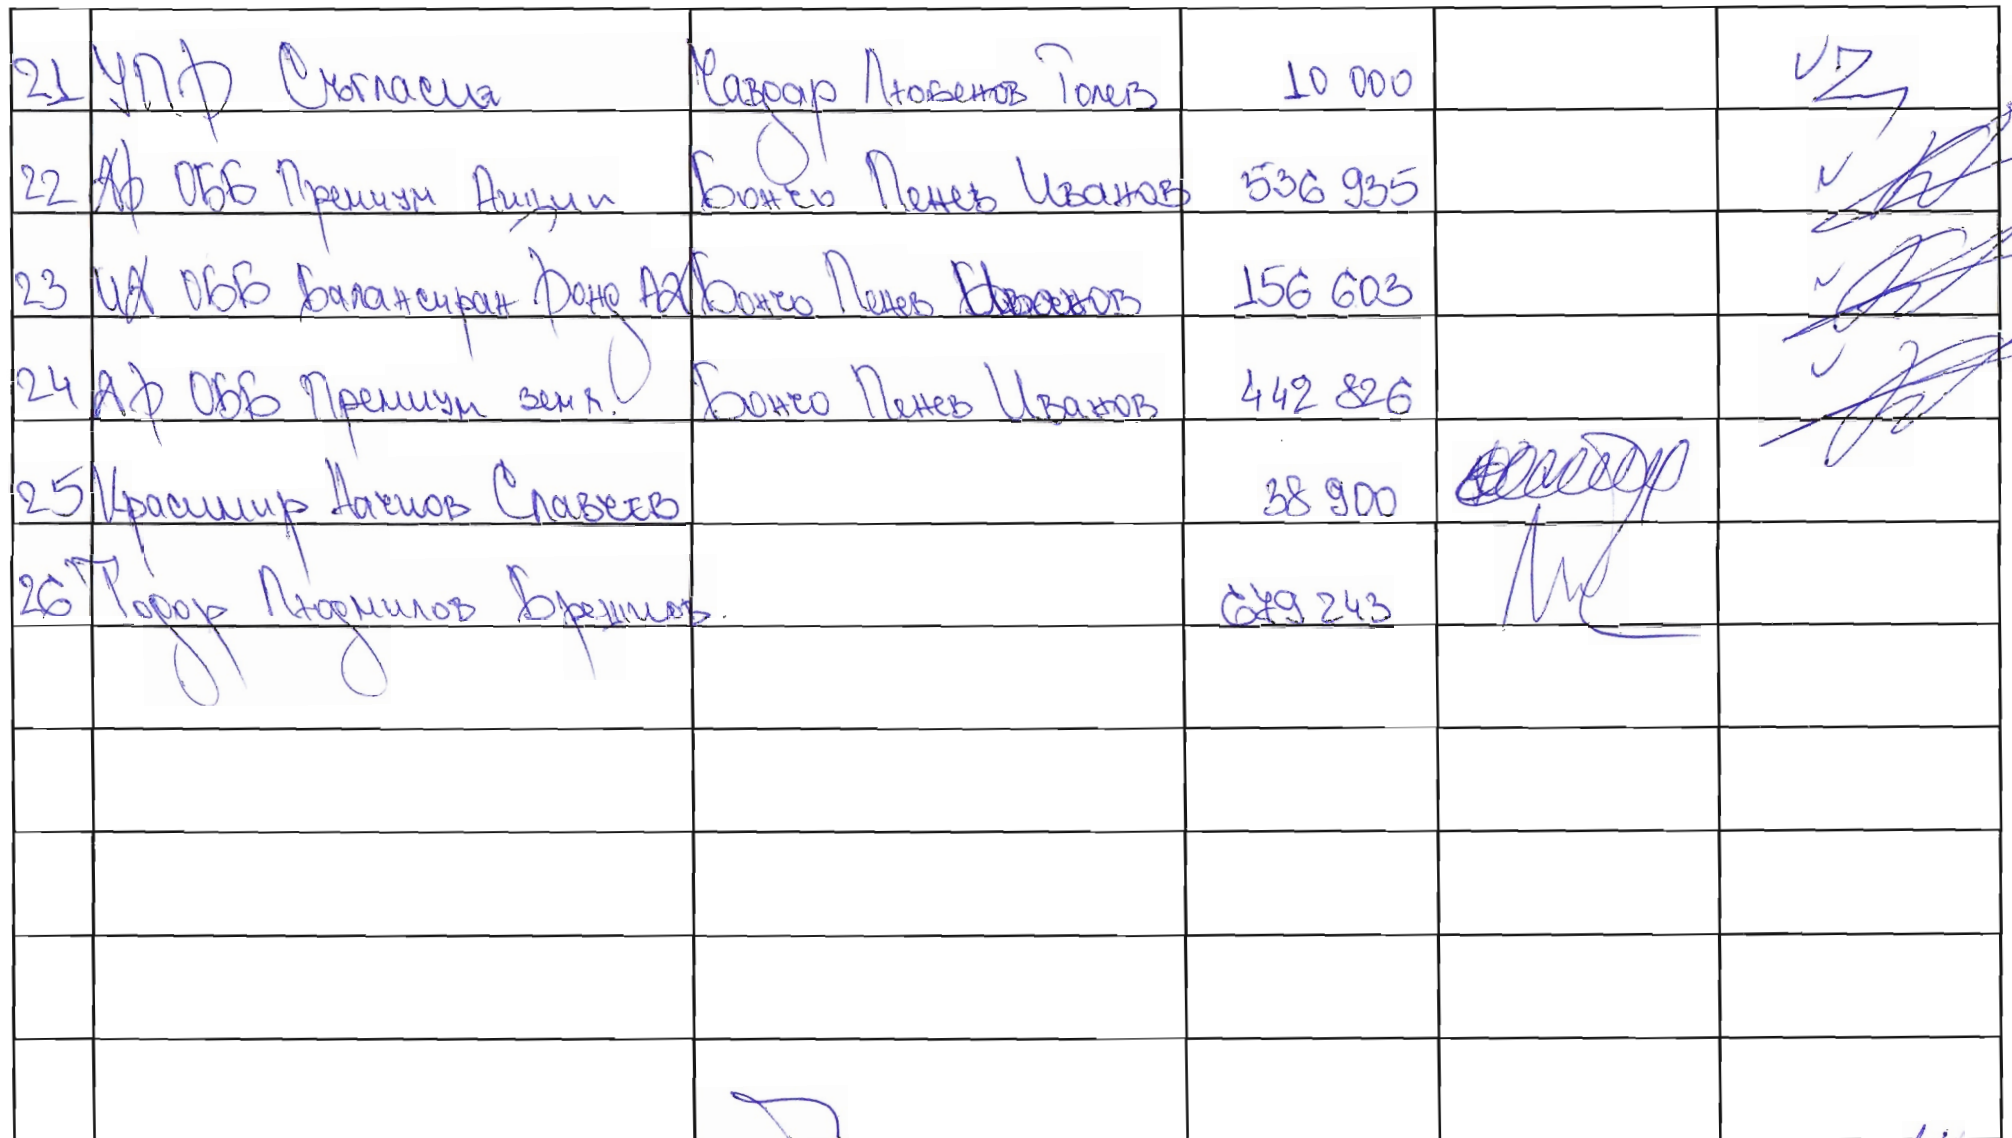 21 УПФ Съгласие Чавдар Любенов Голев 10 000
22 ДФ ОББ Премиум Акции Бончо Пенев Иванов 536 935
23 ИД ОББ Балансиран Фонд АД Бончо Пенев Иванов 156 603
24 ДФ ОББ Премиум земл. Бончо Пенев Иванов 442 826
25 Красимир Дачков Славчев 38 900
26 Тодор Людмилов Брешков. 679 243